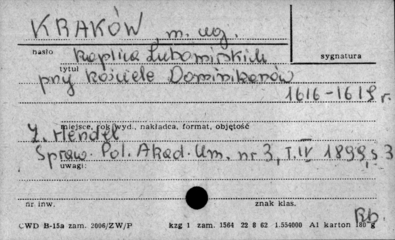 KRAKÓW, m. woj.
hasło
kaplica Lubomirskich
sygnatura
tytuł
przy kościele Dominikanów
1616-1619 r.
miejsce, rok wyd., nakładca, format, objętość
Z. Hendel
Spraw. Pol. Akad. Um. nr 3, T. IV 1899, s 3
uwagi:
nr inw.
znak klas.
Rb.
CWD B-15a zam. 2006/ZW/P kzg 1 zam. 1564 22 8 62 1.554000 A1 karton 180 g